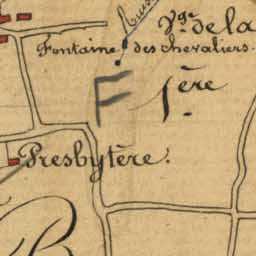 Vge. de la
Fontaine des chevaliers.
F
1ère
Presbytère.
B